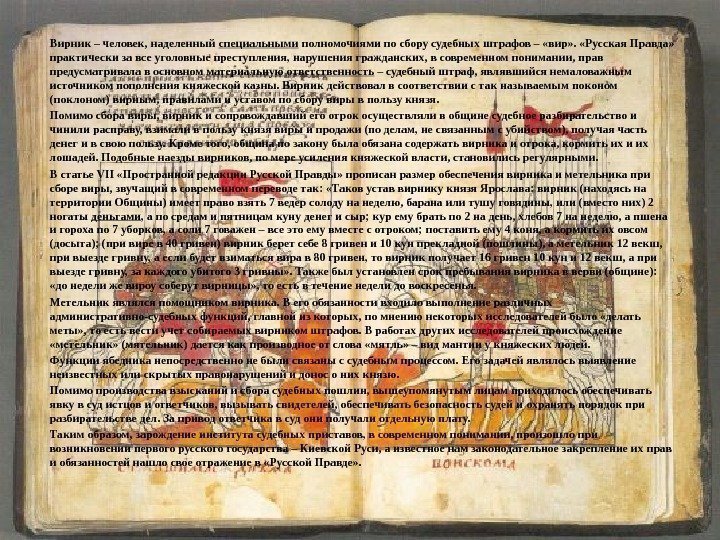 Вирник – человек, наделенный специальными полномочиями по сбору судебных штрафов – «вир». «Русская Правда»
практически за все уголовные преступления, нарушения гражданских, в современном понимании, прав
предусматривала в основном материальную ответственность – судебный штраф, являвшийся немаловажным
источником пополнения княжеской казны. Вирник действовал в соответствии с так называемым поконом
(поклоном) вирным, правилами и уставом по сбору виры в пользу князя.
Помимо сбора виры, вирник и сопровождавший его отрок осуществляли в общине судебное разбирательство и
чинили расправу, взимали в пользу князя виры и продажи (по делам, не связанным с убийством), получая часть
денег и в свою пользу. Кроме того, община по закону была обязана содержать вирника и отрока, кормить их и их
лошадей. Подобные наезды вирников, по мере усиления княжеской власти, становились регулярными.
В статье VII «Пространной редакции Русской Правды» прописан размер обеспечения вирника и метельника при
сборе виры, звучащий в современном переводе так: «Таков устав вирнику князя Ярослава: вирник (находясь на
территории Общины) имеет право взять 7 ведер солоду на неделю, барана или тушу говядины, или (вместо них) 2
ногаты деньгами, а по средам и пятницам куну денег и сыр; кур ему брать по 2 на день, хлебов 7 на неделю, а пшена
и гороха по 7 уборков, а соли 7 голважен – все это ему вместе с отроком; поставить ему 4 коня, а кормить их овсом
(досыта); (при вире в 40 гривен) вирник берет себе 8 гривен и 10 кун прекладной (пошлины), а метельник 12 векш,
при выезде гривну, а если будет взиматься вира в 80 гривен, то вирник получает 16 гривен 10 кун и 12 векш, а при
выезде гривну, за каждого убитого 3 гривны». Также был установлен срок пребывания вирника в верви (общине):
«до недели же вироу соберут вирницы», то есть в течение недели до воскресенья.
Метельник являлся помощником вирника. В его обязанности входило выполнение различных
административно-судебных функций, главной из которых, по мнению некоторых исследователей было «делать
меты», то есть вести учет собираемых вирником штрафов. В работах других исследователей происхождение
«метельник» (мятельник) дается как производное от слова «мятль» – вид мантии у княжеских людей.
Функции ябедника непосредственно не были связаны с судебным процессом. Его задачей являлось выявление
неизвестных или скрытых правонарушений и донос о них князю.
Помимо производства взысканий и сбора судебных пошлин, вышеупомянутым лицам приходилось обеспечивать
явку в суд истцов и ответчиков, вызывать свидетелей, обеспечивать безопасность судей и охранять порядок при
разбирательстве дел. За привод ответчика в суд они получали отдельную плату.
Таким образом, зарождение института судебных приставов, в современном понимании, произошло при
возникновении первого русского государства – Киевской Руси, а известное нам законодательное закрепление их прав
и обязанностей нашло свое отражение в «Русской Правде».